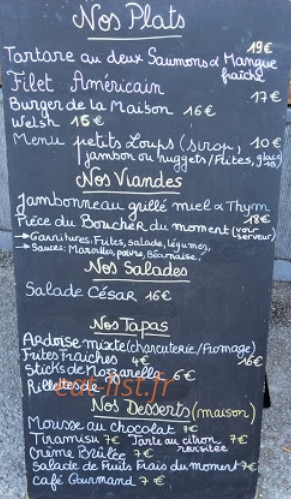 Nos Plats
Tartare au deux Saumons & Mangue fraîche 19€
Filet Américain 17€
Burger de la Maison 16€
Welsh 16€
Menu petits Loups (sirop, 10€
jambon ou nuggets/Frites, glace
Nos Viandes
Jambonneau grillé miel & Thym
Pièce du Boucher du moment (voir serveur) 18€
→Garnitures: Frites, salade, légumes,
→Sauces: Maroilles, poivre, Béarnaise
Nos Salades
Salade César 16€
Nos Tapas
Ardoise mixte (charcuterie/Fromage) 16€
Frites Fraîches 4€
Sticks de Mozzarella 6€
Rillettes de
eat-list.fr
Nos Desserts (maison)
Mousse au chocolat 7€
Tiramisu 7€ Tarte au citron revisitée 7€
Crème Brûlée 7€
Salade de Fruits Frais du moment 7€
Café Gourmand 7€